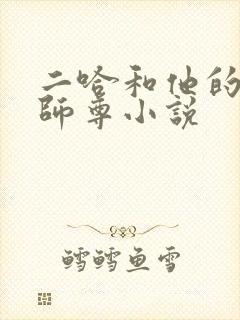 二哈和他的
師尊小説
鳕鳕鱼雪